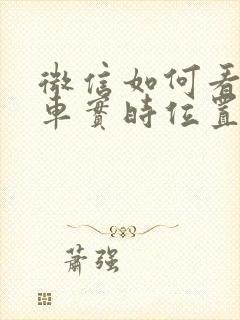 微信如何看
車實時位置
蕭強